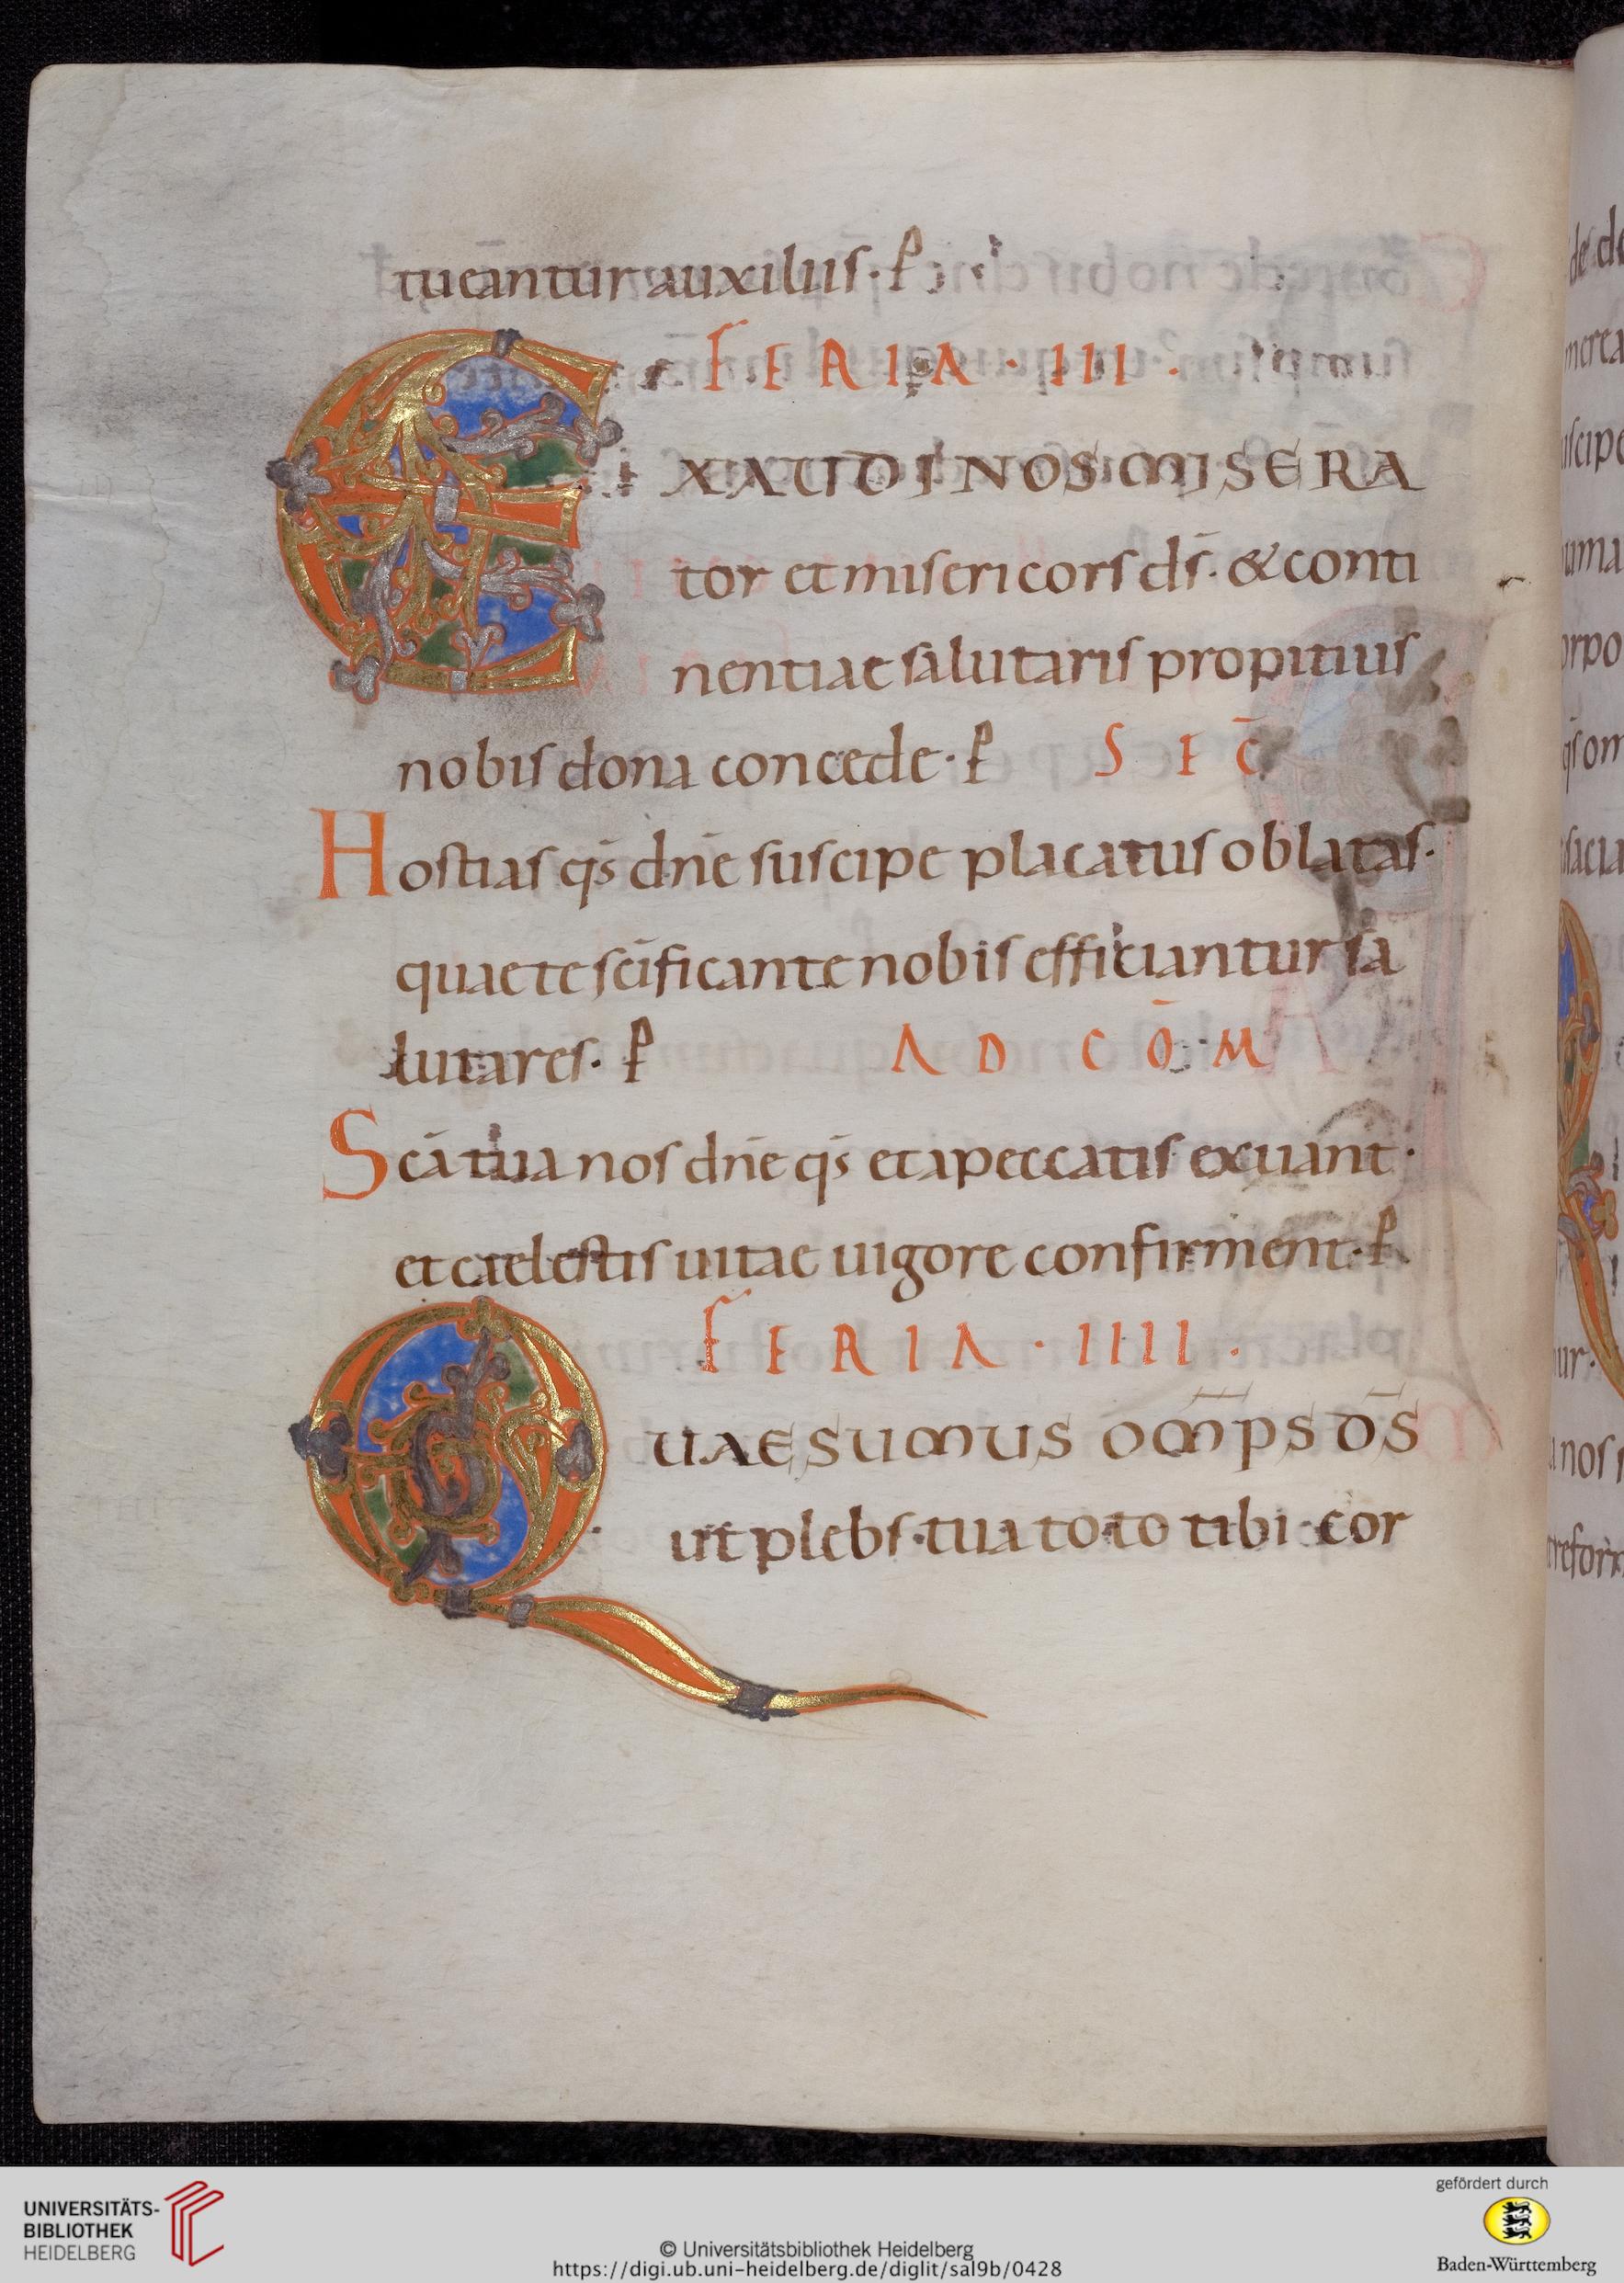 tueantur auxiliis. P
FERIA · III ·
EXAUDI NOS MISERA
tor et misericors d̄s. & conti
nentiae salutaris propitius
nobis dona concede. P S E C̄
Hostias qs̄ dn̄e suscipe placatus oblatas.
quae te sc̄ificante nobis efficiantur sa
lutares. P A D C Ō M
Sc̄a tua nos dn̄e qs̄ et a peccatis exuant.
et caelestis uitae uigore confirment. P
FERIA · IIII ·
QUAESUMUS OM̄PS D̄S
ut plebs tua toto tibi cor
UNIVERSITÄTS-
BIBLIOTHEK
HEIDELBERG
© Universitätsbibliothek Heidelberg
https://digi.ub.uni-heidelberg.de/diglit/sal9b/0428
gefördert durch
Baden-Württemberg